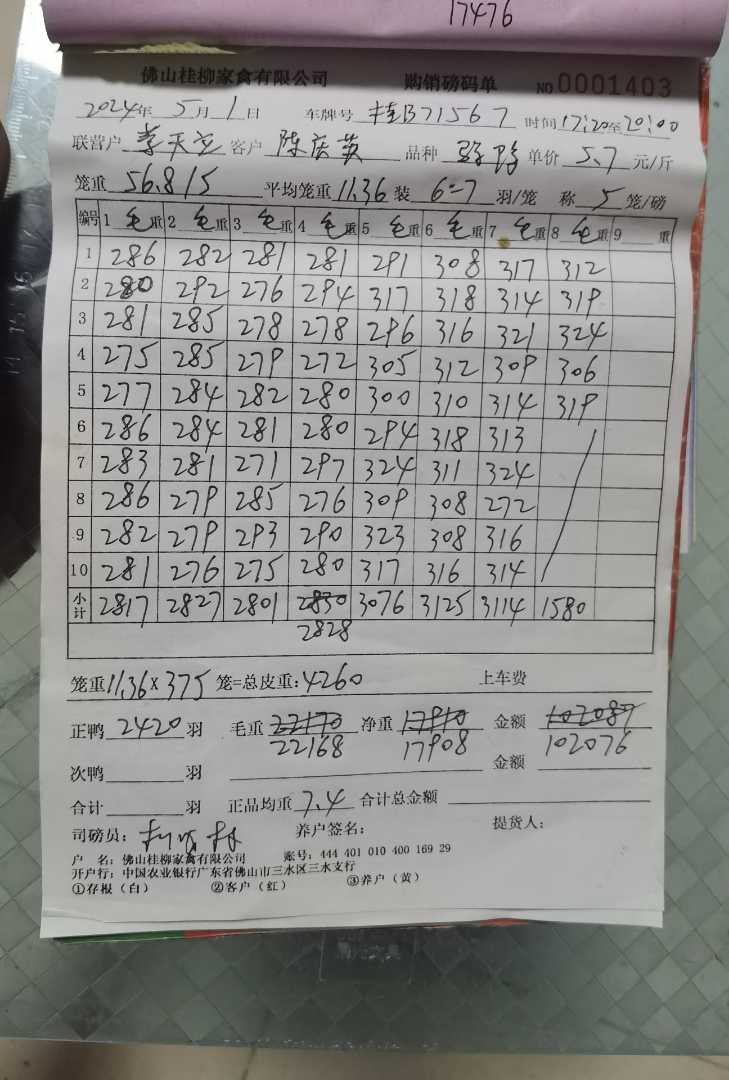 17476
佛山桂柳家禽有限公司 购销磅码单 NO 0001403
2024年 5月 1日 车牌号 桂B71567 时间17:20至20:00
联营户 李天 客户 陈庆英 品种 单价 5.7 元/斤
笼重 56.8/5 平均笼重 11.36 装 6-7 羽/笼 称 5 笼/磅
编号 1 毛重 2 毛重 3 毛重 4 毛重 5 毛重 6 毛重 7 毛重 8 毛重 9 重
1 286 282 281 281 291 308 317 312
2 280 292 276 294 317 318 314 319
3 281 285 278 278 296 316 321 324
4 275 285 279 272 305 312 309 306
5 277 284 282 280 300 310 314 319
6 286 284 281 280 294 318 313
7 283 281 271 297 324 311 324
8 286 279 285 276 309 308 272
9 282 279 293 290 323 308 316
10 281 276 275 280 317 316 314
小计 2817 2827 2801 2830 3076 3125 3114 1580
2828
笼重 11.36×375 笼=总皮重:4260 上车费
正鸭 2420 羽 毛重 22170 净重 17910 金额 102087
22168 17908 102076
次鸭 羽 金额
合计 羽 正品均重 7.4 合计总金额
司磅员: 养户签名: 提货人:
户 名: 佛山桂柳家禽有限公司 账号: 444 401 010 400 169 29
开户行: 中国农业银行广东省佛山市三水区三水支行
①存根(白) ②客户(红) ③养户(黄)